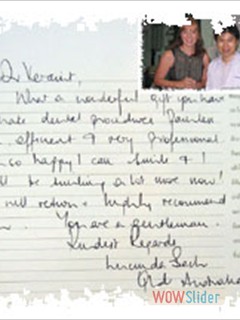 Dr
What a wonderful gift you have
make dental procedures painless
efficient & very professional
so happy I can smile & !
be smiling a lot more now!
will return & highly recommend
You are a gentleman.
Kindest Regards
Lucinda
Qld Australia
WOWSlider